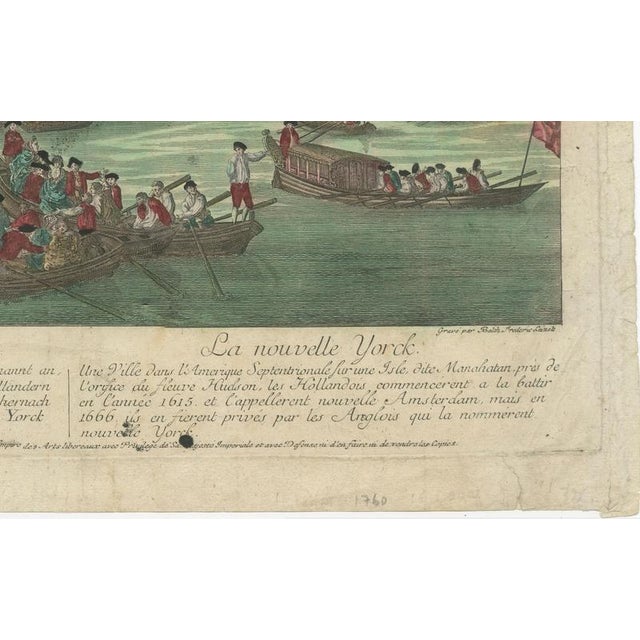 Gravé par Balth. Frederic Leizelt
La nouvelle Yorck.
nannt an
llandern
hernach
Yorck
Une Ville dans l'Amerique Septentrionale sur une Isle, dite Manahatan, près de
l'orifice du fleuve Hudson, les Hôllandois commencerent a la battir
en L'année 1615. et L'appellerent nouvelle Amsterdam, mais en
1666 ils en fierent privés par les Anglois qui la nommerent
nouvelle Yorck.
Empire des Arts libereaux avec Privilege de Sa Majesté Imperiale et avec Defense ni d'en faire ni de vendre les Copies.
1760